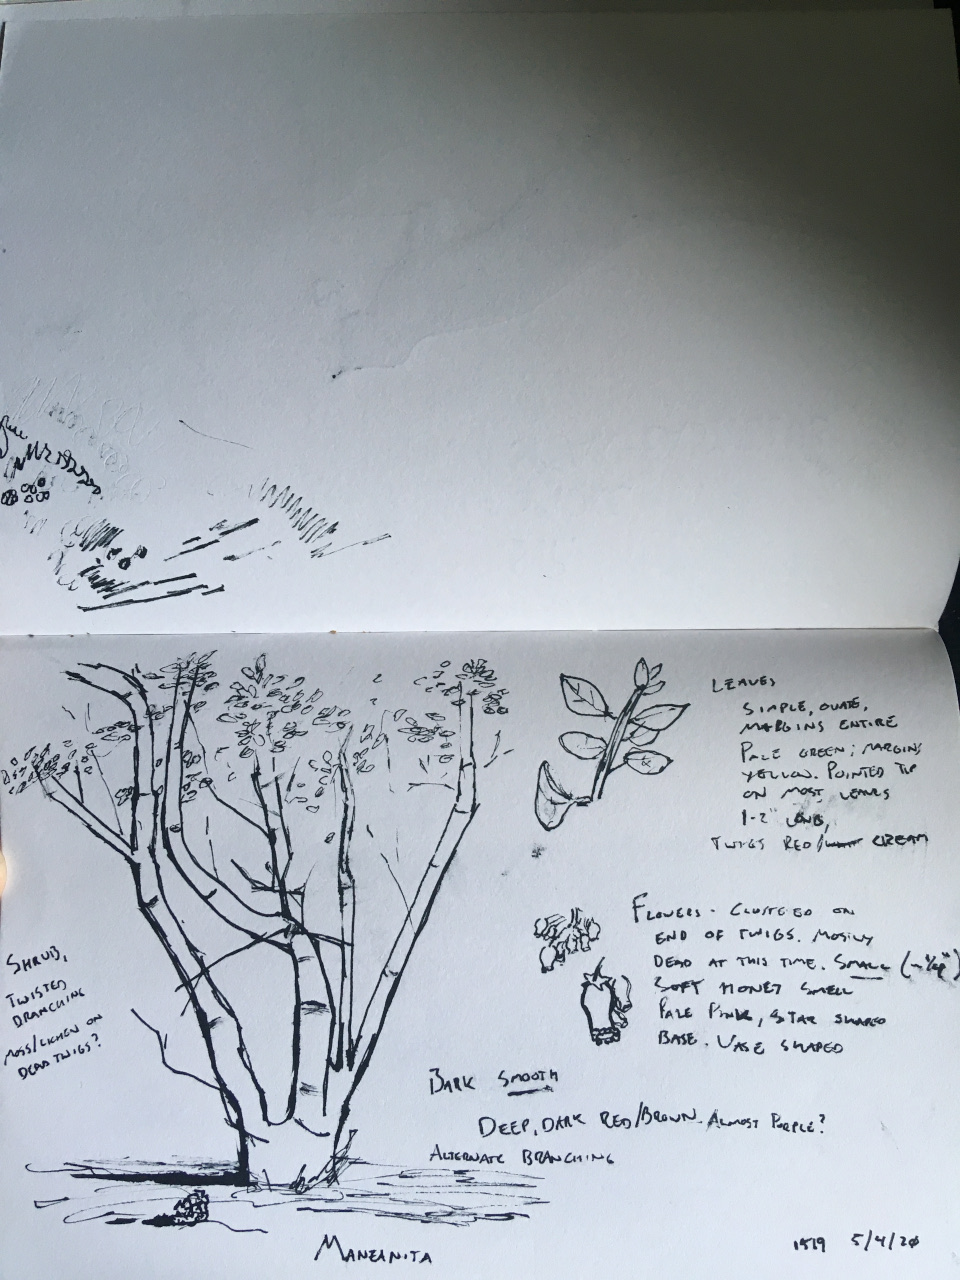 LEAVES
SIMPLE, OVATE,
MARGINS ENTIRE
PALE GREEN; MARGINS
YELLOW. POINTED TIP
ON MOST LEAVES
1-2" LONG,
TWIGS RED/ CREAM
FLOWERS - CLUSTERED ON
END OF TWIGS. MOSTLY
DEAD AT THIS TIME. SMALL
SOFT HONEY SMELL
PALE PINK, STAR SHAPED
BASE. VASE SHAPED
SHRUB,
TWISTED
BRANCHING
MOSS/LICHEN ON
DEAD TWIGS?
BARK SMOOTH
DEEP, DARK RED/BROWN. ALMOST PURPLE?
ALTERNATE BRANCHING
MANZANITA
1519 5/4/20